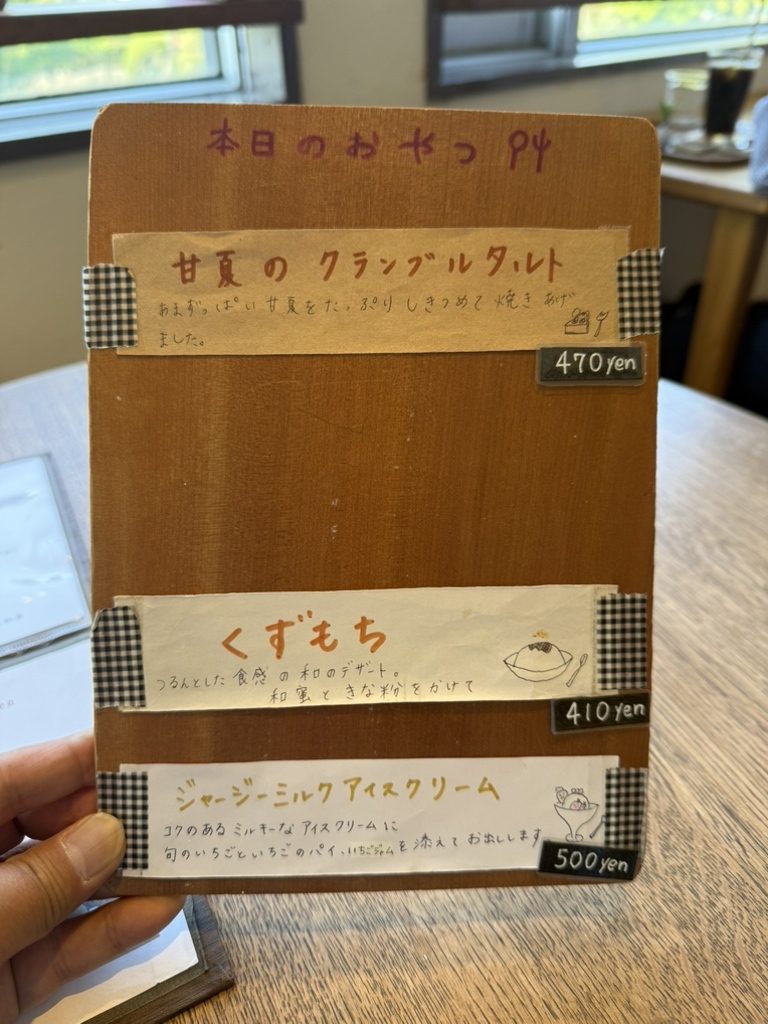 本日のおやつ
甘夏のクランブルタルト
あまずっぱい甘夏をたっぷりしきつめて焼きあげ
ました。
470yen
くずもち
つるんとした食感の和のデザート。
和蜜ときな粉をかけて
410yen
ジャージーミルクアイスクリーム
コクのあるミルキーなアイスクリームに
旬のいちごといちごのパイ、いちごジャムを添えてお出しします
500yen